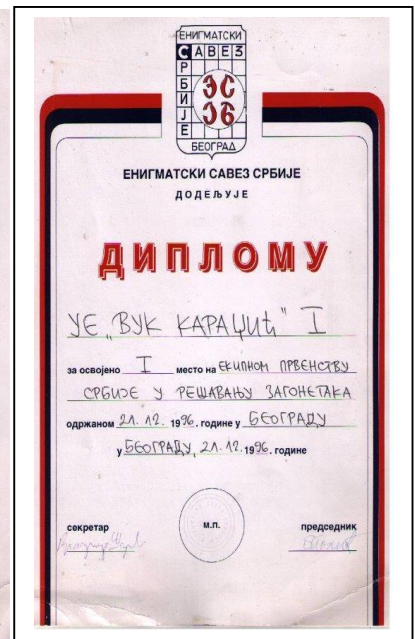 ЕНИГМАТСКИ
САВЕЗ
СРБИЈЕ
БЕОГРАД
ЕНИГМАТСКИ САВЕЗ СРБИЈЕ
ДОДЕЉУЈЕ
ДИПЛОМУ
УЕ „ВУК КАРАЏИЋ" I
за освојено I место на ЕКИПНОМ ПРВЕНСТВУ
СРБИЈЕ У РЕШАВАЊУ ЗАГОНЕТАКА
одржаном 21. 12. 1996. године у БЕОГРАДУ
у БЕОГРАДУ, 21. 12. 1996. године
секретар м.п. председник